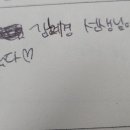 김혜경 선생님
다♡